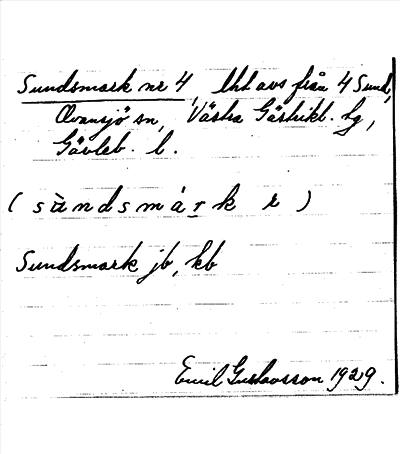 Sundsmark nr 4, lht avs från 4 Sund,
Ovansjö sn, Västra Gästrikl. tg,
Gävleb. l.
( s ù n d s m á r k r )
Sundsmark jb, kb
Emil Gustavsson 1929.